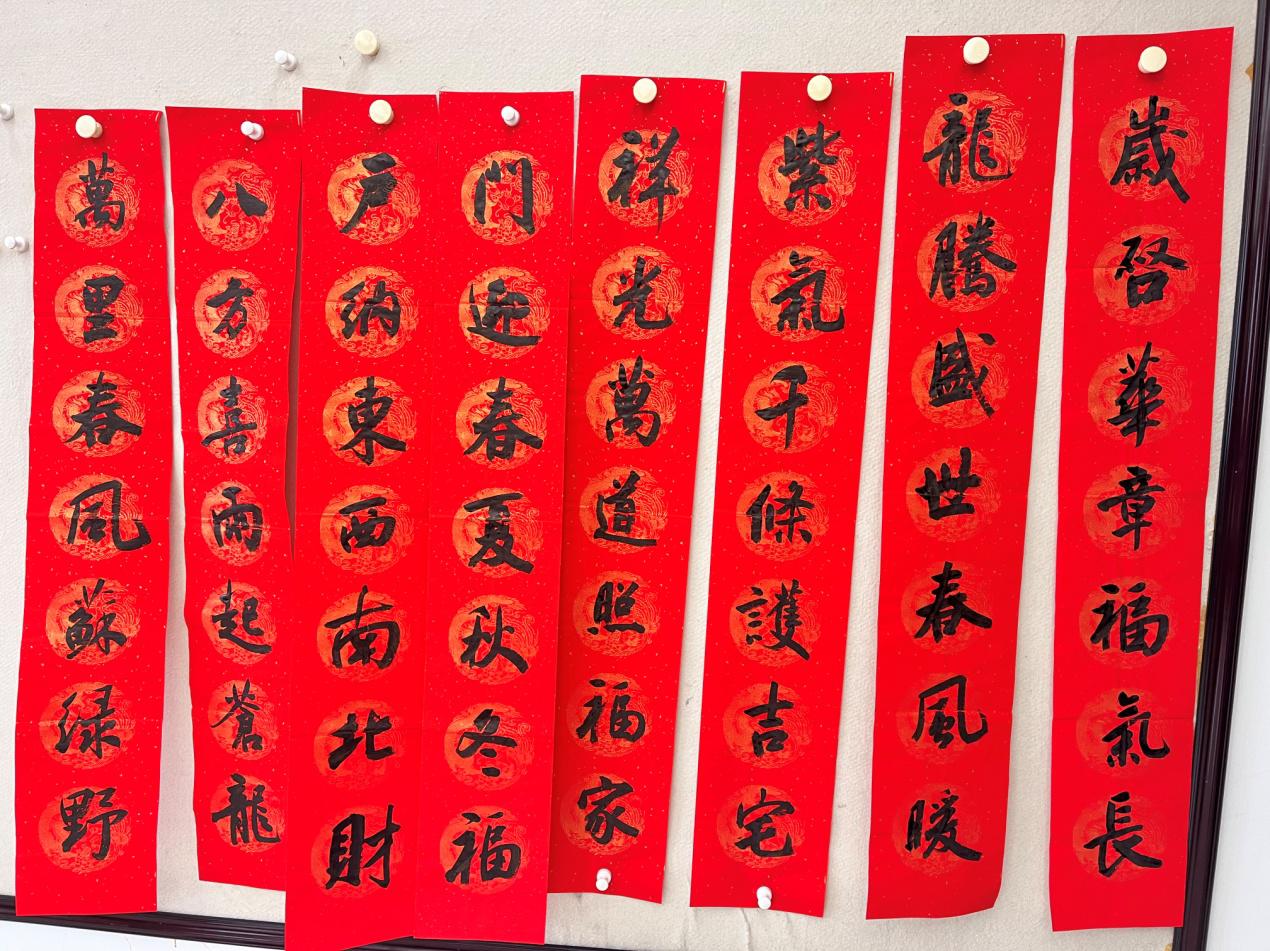 歲啓華章福氣長
龍騰盛世春風暖
紫氣千條護吉宅
祥光萬道照福家
門迎春夏秋冬福
戶納東西南北財
八方喜雨起蒼龍
萬里春風蘇緑野